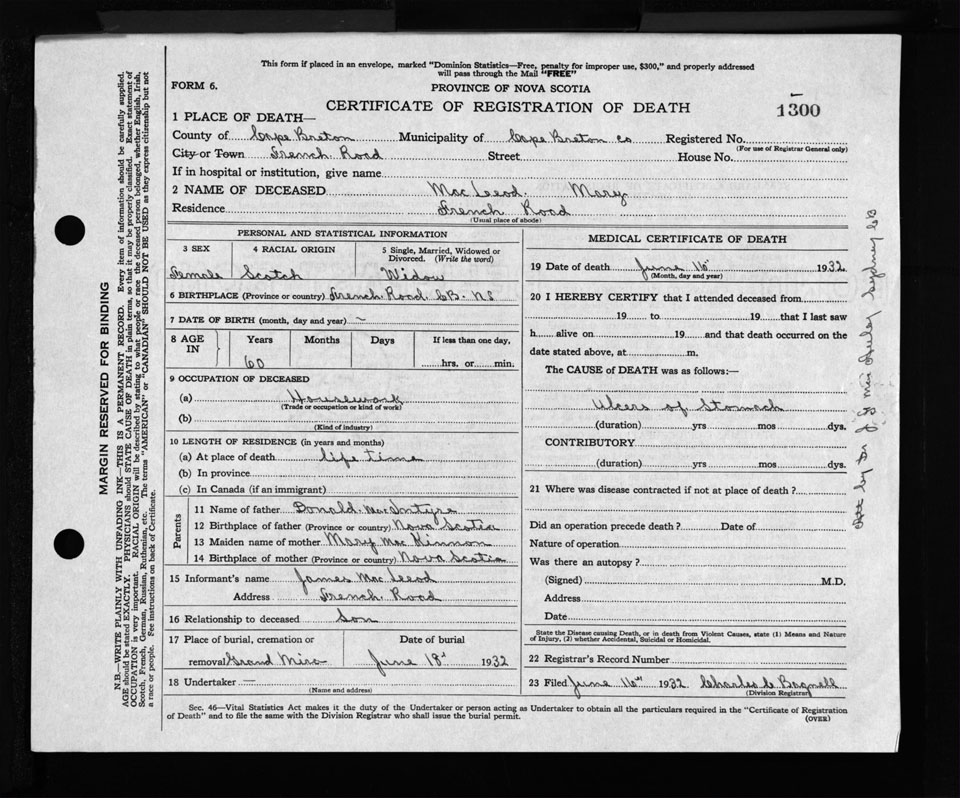 This form if placed in an envelope, marked "Dominion Statistics—Free, penalty for improper use, $300," and properly addressed
will pass through the Mail "FREE"
FORM 6.
PROVINCE OF NOVA SCOTIA
CERTIFICATE OF REGISTRATION OF DEATH
1300
1 PLACE OF DEATH—
County of Cape Breton Municipality of Cape Breton Co Registered No.
(For use of Registrar General only)
City or Town French Road Street House No.
If in hospital or institution, give name
2 NAME OF DECEASED MacLeod Mary
Residence French Road
(Usual place of abode)
PERSONAL AND STATISTICAL INFORMATION
3 SEX 4 RACIAL ORIGIN 5 Single, Married, Widowed or Divorced. (Write the word)
Female Scotch Widow
6 BIRTHPLACE (Province or country) French Road. CB. NS
7 DATE OF BIRTH (month, day and year) —
8 AGE IN Years Months Days If less than one day,
60 hrs. or min.
9 OCCUPATION OF DECEASED
(a) Housework
(Trade or occupation or kind of work)
(b)
(Kind of industry)
10 LENGTH OF RESIDENCE (in years and months)
(a) At place of death life time
(b) In province
(c) In Canada (if an immigrant)
Parents
11 Name of father Donald MacIntyre
12 Birthplace of father (Province or country) Nova Scotia
13 Maiden name of mother Mary MacKinnon
14 Birthplace of mother (Province or country) Nova Scotia
15 Informant's name James MacLeod
Address French Road
16 Relationship to deceased Son
17 Place of burial, cremation or Date of burial
removal Grand Mira June 18" 1932
18 Undertaker —
(Name and address)
MEDICAL CERTIFICATE OF DEATH
19 Date of death June 16" 1932
(Month, day and year)
20 I HEREBY CERTIFY that I attended deceased from
19 to 19 that I last saw
h alive on 19 and that death occurred on the
date stated above, at m.
The CAUSE of DEATH was as follows:—
Ulcers of Stomach
(duration) yrs mos dys.
CONTRIBUTORY
(duration) yrs mos dys.
21 Where was disease contracted if not at place of death ?
Did an operation precede death ? Date of
Nature of operation
Was there an autopsy ?
(Signed) M.D.
Address
Date
State the Disease causing Death, or in death from Violent Causes, state (1) Means and Nature
of Injury, (2) whether Accidental, Suicidal or Homicidal.
22 Registrar's Record Number
23 Filed June 16" 1932 Charles C Bagnell
(Division Registrar)
Sec. 46—Vital Statistics Act makes it the duty of the Undertaker or person acting as Undertaker to obtain all the particulars required in the "Certificate of Registration
of Death" and to file the same with the Division Registrar who shall issue the burial permit. (OVER)
MARGIN RESERVED FOR BINDING
N.B.—WRITE PLAINLY WITH UNFADING INK—THIS IS A PERMANENT RECORD. Every item of information should be carefully supplied.
AGE should be stated EXACTLY. PHYSICIANS should STATE CAUSE OF DEATH in plain terms, so that it may be properly classified. Exact statement of
OCCUPATION is very important. RACIAL ORIGIN will be described by stating to what people or race the deceased person belonged, whether English, Irish,
Scotch, French, German, Russian, Ruthenian, etc. The terms "AMERICAN" or "CANADIAN" SHOULD NOT BE USED as they express citizenship but not
a race or people. See instructions on back of Certificate.
by Dr J. G. Sydney CB